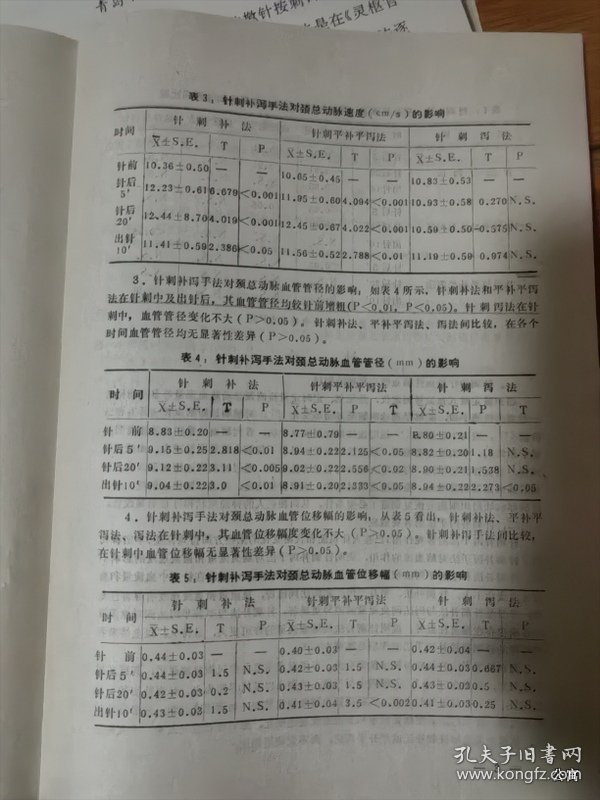 青岛
撳针按刺
是在《灵枢官
表3：针刺补泻手法对颈总动脉速度(cm/s)的影响
时间 针刺补法 针刺平补平泻法 针刺泻法
X±S.E. T P X±S.E. T P X±S.E. T P
针前 10.36±0.50 — — 10.65±0.45 — — 10.83±0.53 — —
针后5′ 12.23±0.61 6.679 <0.001 11.95±0.60 4.094 <0.001 10.93±0.58 0.270 N.S.
针后20′ 12.44±8.70 4.019 <0.001 12.45±0.67 4.022 <0.001 10.59±0.50 -0.575 N.S.
出针10′ 11.41±0.59 2.386 <0.05 11.56±0.52 2.788 <0.01 11.19±0.59 0.974 N.S.
3．针刺补泻手法对颈总动脉血管管径的影响，如表4所示，针刺补法和平补平泻
法在针刺中及出针后，其血管管径均较针前增粗(P<0.01，P<0.05)。针刺泻法在针
刺中，血管管径变化不大(P>0.05)。针刺补法、平补平泻法、泻法间比较，在各个
时间血管管径均无显著性差异(P>0.05)。
表4：针刺补泻手法对颈总动脉血管管径(mm)的影响
时间 针刺补法 针刺平补平泻法 针刺泻法
X±S.E. T P X±S.E. P T X±S.E. P T
针前 8.83±0.20 — — 8.77±0.79 — — 8.80±0.21 — —
针后5′ 9.15±0.25 2.818 <0.01 8.94±0.22 2.125 <0.05 8.82±0.20 1.18 N.S.
针后20′ 9.12±0.22 3.11 <0.005 9.02±0.22 2.556 <0.02 8.90±0.21 1.538 N.S.
出针10′ 9.04±0.22 3.0 <0.01 8.91±0.20 2.333 <0.05 8.94±0.22 2.273 <0.05
4．针刺补泻手法对颈总动脉血管位移幅的影响，从表5看出，针刺补法、平补平
泻法、泻法在针刺中，其血管位移幅度变化不大(P>0.05)。针刺补泻手法间比较，
在针刺中血管位移幅无显著性差异(P>0.05)。
表5：针刺补泻手法对颈总动脉血管位移幅(mm)的影响
时间 针刺补法 针刺平补平泻法 针刺泻法
X±S.E. T P X±S.E. T P X±S.E. T P
针前 0.44±0.03 — — 0.40±0.03 — — 0.42±0.04 — —
针后5′ 0.44±0.03 1.5 N.S. 0.42±0.03 1.5 N.S. 0.44±0.03 0.667 N.S.
针后20′ 0.42±0.03 0.2 N.S. 0.43±0.03 1.5 N.S. 0.43±0.03 0.5 N.S.
出针10′ 0.43±0.03 1.5 N.S. 0.41±0.04 3.5 <0.002 0.41±0.03 0.25 N.S.
孔夫子旧书网
www.kongfz.com